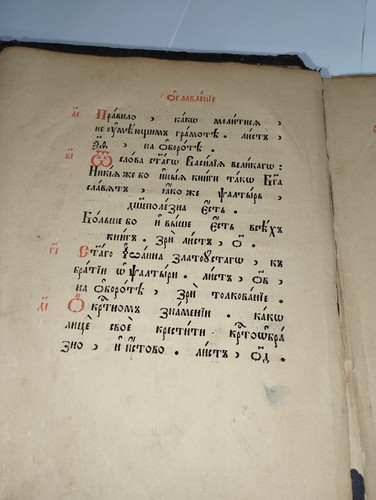 Ѻ҆главле́нїе
а҃і Пра́вило , ка́кѡ моли́тисѧ
не ᲂу҆мѣ́ющимъ гра́мотѣ . ли́стъ ,
, на ѻ҆боро́тѣ .
в҃і Ѿ сло́ва ст҃а́гѡ Васи́лїѧ вели́кагѡ :
Ника́ѧ же бо и҆ны́ѧ кни́ги та́кѡ Бг҃а
сла́вѧтъ , ꙗ҆́коже ѱалты́рь ,
дш҃еполе́зна є҆́сть .
Бо́льше бо и҆ вы́ше є҆́сть всѣ́хъ
кни́гъ . зрѝ ли́стъ , ѻ҃ .
г҃і Ст҃а́гѡ і҆ѡа́нна златоꙋ́стагѡ , къ
бра́тїи ѡ҆ ѱалты́ри . ли́стъ , ѻ҃в ,
на ѻ҆боро́тѣ , зрѝ толкова́нїе .
д҃і Ѻ҆ кр҃тномъ зна́менїи . ка́кѡ
лицѐ своѐ крести́ти кр҃тоѻбра́
зно , и҆ и҆́стово . ли́стъ , ѻ҃д .